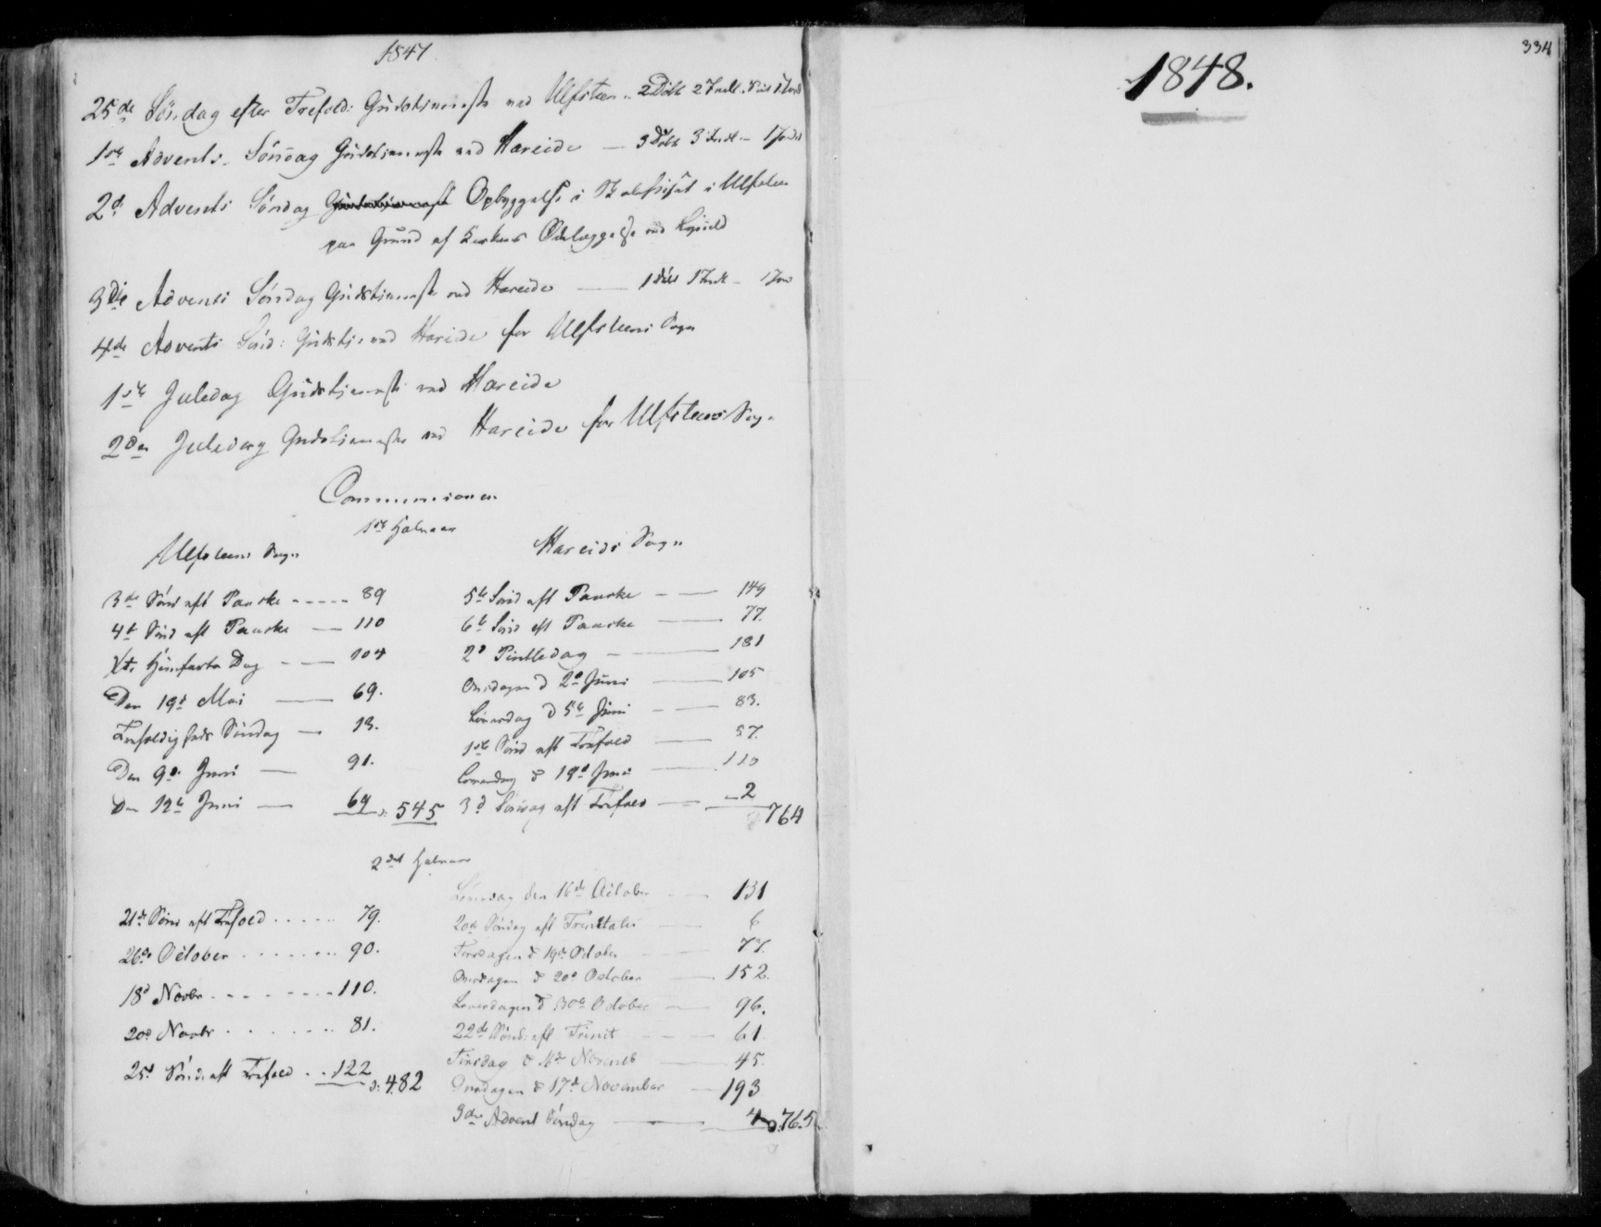 1847
25de Söndag efter Trefold: Gudstjeneste ved Ulfsteen 2 Döbt 2
1ste Advents Söndag Gudstjeneste ved Hareide — 3 Döbt 3
2d Advents Söndag Gudstjeneste Opbyggelse i i Ulfsteen
paa Grund af Kirkens Ödelæggelse ved
3die Advents Söndag Gudstjeneste ved Hareide — 1 Döbt 1
4de Advents Sönd: Gudstj: ved Hareide for Ulfsteens Sogn
1ste Juledag Gudstjeneste ved Hareide
2den Juledag Gudstjeneste ved Hareide for Ulfsteens Sogn
Communionen
1ste Halvaar
Ulfsteens Sogn
3de Sönd eft Paaske ----- 89
4de Sönd eft Paaske — 110
Xti Himfarts Dag - — 104
Den 19d Mai — 69.
Trefoldigheds Söndag — 13.
Den 9d Juni — 91.
Den 12te Juni — 69 545
Hareids Sogn
5te Sönd eft Paaske — 149
6te Sönd eft Paaske — 77.
2d Pintsedag — 181
Onsdagen d 2d Juni — 105
Löverdag d 5te Juni — 83.
1ste Sönd eft Trefold — 57.
Löverdag d 19d Juni — 110
3d Söndag eft Trefold — 2
764
2det Halvaar
21de Sönd eft Trefold ..... 79.
26de October ....... 90.
18d Novbr ....... 110.
20d Novbr ....... 81.
25d Sönd. eft Trefold .. 122 482
Löverdag den 16de October — 131
20de Söndag eft Trinitatis — 6
October — 77.
Onsdagen d 20d October — 152.
Löverdagen d 30te October — 96.
22de Sönd. eft Trinit — 61
Tirsdag d 16de Novemb — 45.
Onsdagen d 17d November — 193
3die Advent Söndag — 4 765
1848.
334